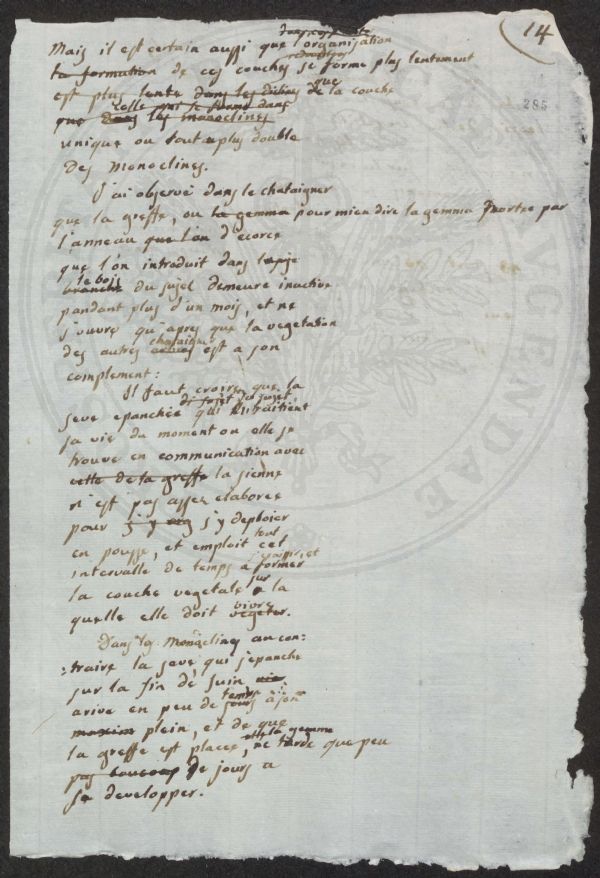 14
285
Mais il est certain aussi que l'organisation
la formation de ces couches se forme plus lentement
est plus lente dans les diclines que de la couche
celle qui se forme dans
que dans les monoclines
unique ou tout au plus double
Des Monoclines.
J'ai observé dans le chataigner
que la greffe, ou la gemma pour mieu dire la gemma portée par
l'anneau que l'on d'ecorce
que l'on introduit dans la
le bois
branche du sujet demeure inactive
pandant plus d'un mois, et ne
s'ouvre qu'apres que la vegetation
chataigners
des autres est a son
complement:
Il faut croire que la
du sujet du sujet
seve epanchée qui
sa vie du moment ou elle se
trouve en communication avec
celle de la greffe la sienne
n'est pas assez elaborée
pour s'y s'y deploier
en pousse, et emploit tout cet
intervalle de temps a former
la couche vegetale sur la
quelle elle doit vivre
vegeter.
Dans les Monoclines au con:
:traire la seve, qui s'epanche
sur la fin de Juin
arive en peu de temps
jours à son
maxim plein, et de que
la greffe est placée, la gemma
ne tarde que peu
pas boucoup de jours a
se developper.